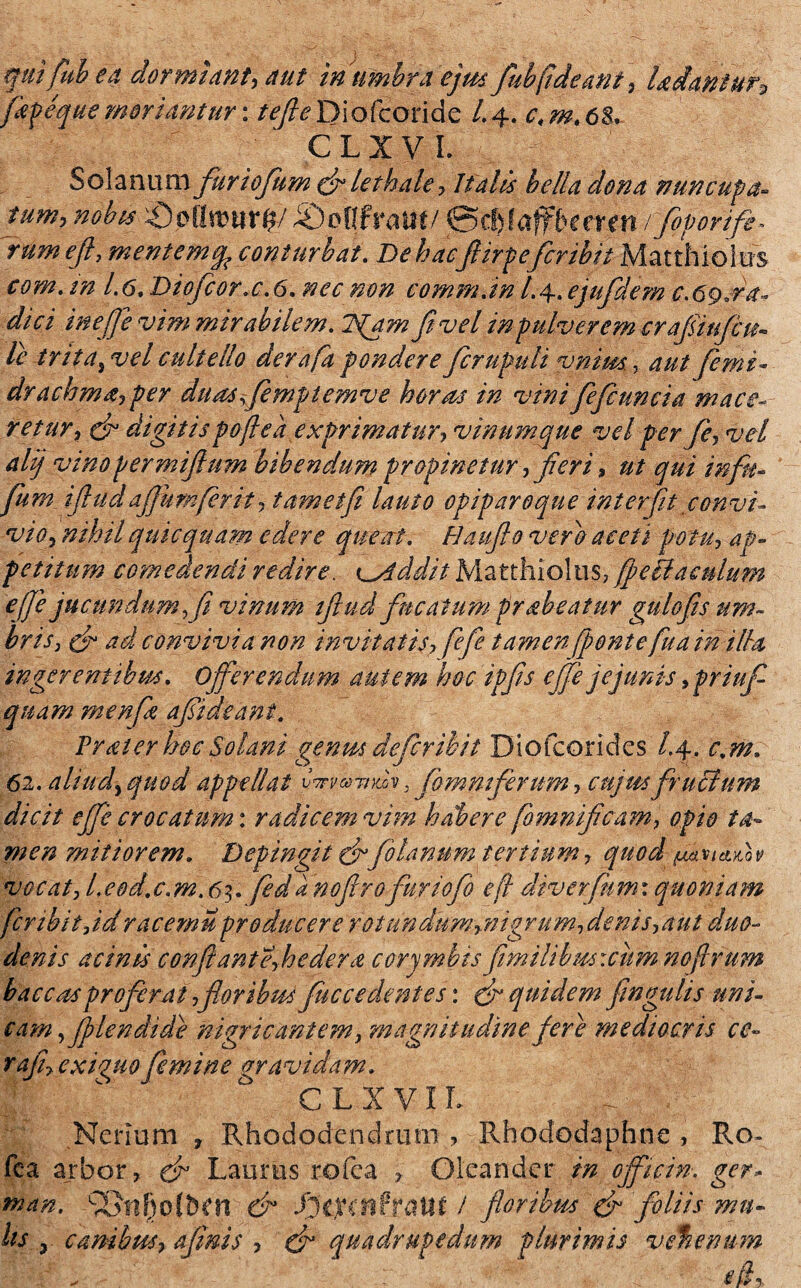 qui ſub ea dormiant, aut in umbra ejus ſubſideant, lædantur,
ſæpéque moriantur: teſte Dioſcoride l.4. c.m.68.
CLXVI.
Solanum furioſum & lethale, Italis bella dona nuncupa-
tum, nobis Dollwurtz/ Dollkraut/ Schlaffbeeren / ſoporife-
rum eſt, mentemq́; conturbat. De hac ſtirpe ſcribit Matthiolus
com. in l.6. Dioſcor.c.6. nec non comm.in l.4. ejuſdem c.69.ra-
dici ineſſe vim mirabilem. Nam ſi vel in pulverem craſſiuſcu-
le trita, vel cultello deraſa pondere ſcrupuli vnius, aut ſemi-
drachmæ, per duas, ſemptemve horas in vini ſeſcuncia mace-
retur, & digitis poſteà exprimatur, vinumque vel per ſe, vel
alij vino permiſtum bibendum propinetur, fieri, ut qui infu-
ſum iſtud aſſumſerit, tametſi lauto opiparoque interſit convi-
vio, nihil quicquam edere queat. Hauſto verò aceti potu, ap-
petitum comedendi redire. Addit Matthiolus, ſpectaculum
eſſe jucundum, ſi vinum iſtud fucatum præbeatur guloſis um-
bris, & ad convivia non invitatis, ſeſe tamen ſponte ſua in illa
ingerentibus. Offerendum autem hoc ipſis eſſe jejunis, priuſ-
quam menſæ aſſideant.
Præter hoc Solani genus deſcribit Dioſcorides l.4. c.m.
62. aliud, quod appellat ὑπνωτικὸν, ſomniferum, cujus fructum
dicit eſſe crocatum: radicem vim habere ſomnificam, opio ta-
men mitiorem. Depingit & ſolanum tertium, quod μανικὸν
vocat, l.eod.c.m.63. ſed à noſtro furioſo eſt diverſum: quoniam
ſcribit, id racemū producere rotundum, nigrum, denis, aut duo-
denis acinis conſtantē, hederæ corymbis ſimilibus: cùm noſtrum
baccas proferat, floribus ſuccedentes: & quidem ſingulis uni-
cam, ſplendidè nigricantem, magnitudine ferè mediocris ce-
raſi, exiguo ſemine gravidam.
CLXVII.
Nerium, Rhododendrum, Rhododaphne, Ro-
ſea arbor, & Laurus roſea, Oleander in officin. ger-
man. Vnholden & Hexenkraut / floribus & foliis mu-
lis, canibus, aſinis, & quadrupedum plurimis venenum
eſt,